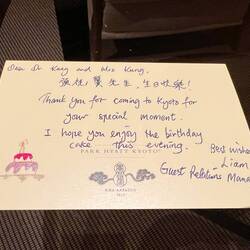 Dear Dr Kang and Mrs Kung,
生日快樂!
Thank you for coming to Kyoto for
your special moment.
I hope you enjoy the birthday
cake this evening.
PARK HYATT KYOTO
Best wishes
Liam
Guest Relations Mana